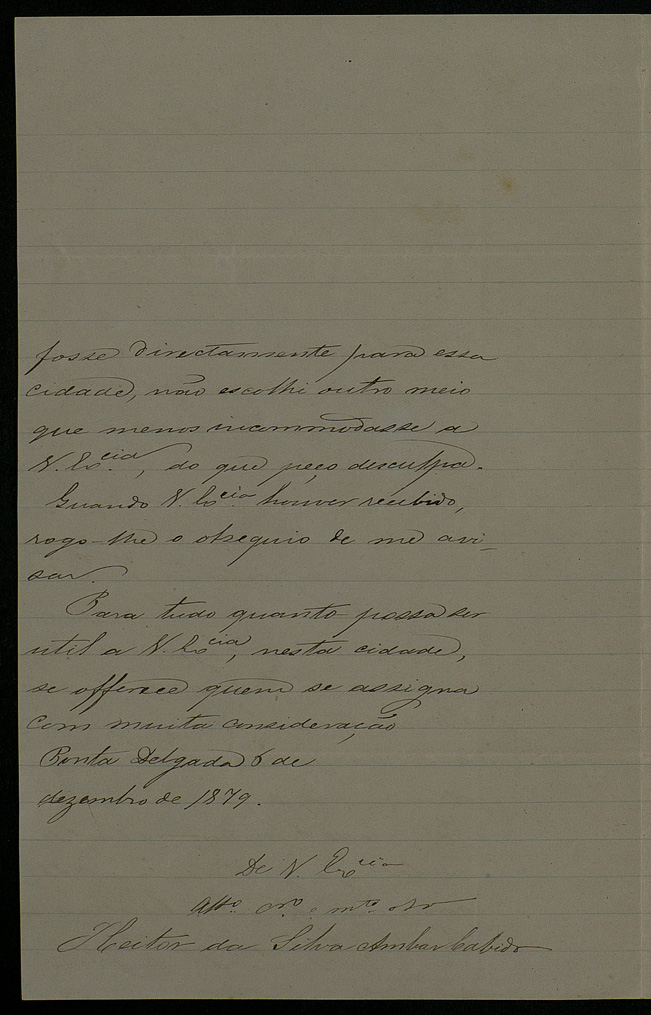 fosse directamente para essa
cidade, não escolhi outro meio
que menos incommodasse a
V. Ex.cia, do que peço desculpa.
Quando V. Ex.cia houver recebido,
rogo-lhe o obsequio de me avi-
sar.
Para tudo quanto possa ser
util a V. Ex.cia, nesta cidade,
se offerece quem se assigna
com muita consideração
Ponta Delgada 6 de
dezembro de 1879.
De V. Ex.cia
Att.o e m.to
Heitor da Silva Ambar Cabido